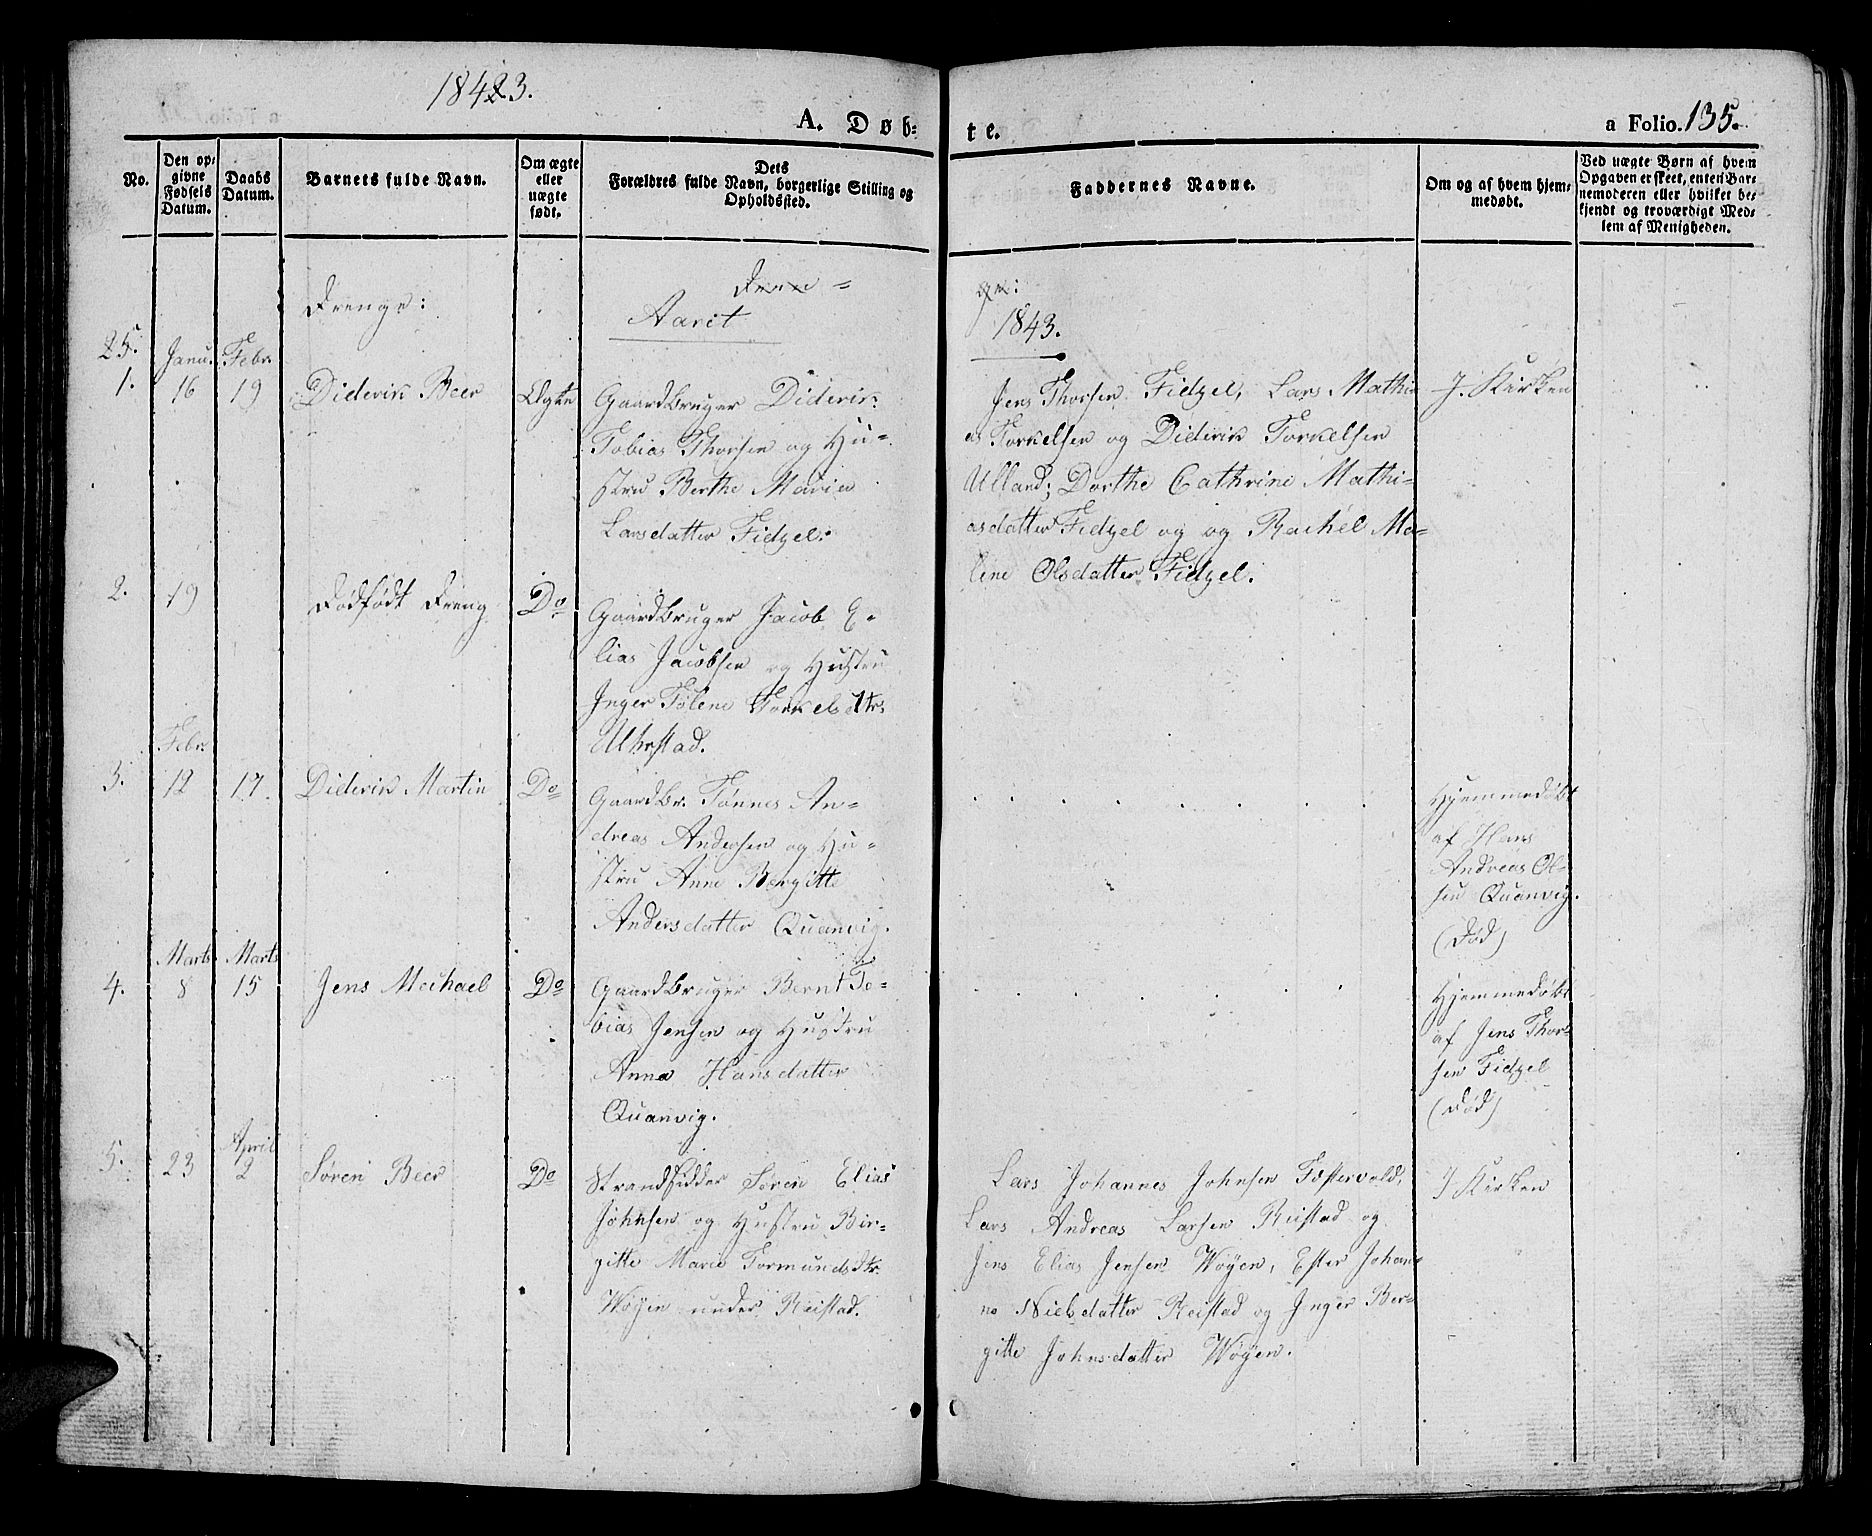 18423.
A. Døb-
te.
a Folio. 135.
No.
Den op-
givne
Fødsels
Datum.
Daabs
Datum.
Barnets fulde Navn.
Om ægte
eller
uægte
født.
Dets
Forældres fulde Navn, borgerlige Stilling og
Opholdssted.
Faddernes Navne.
Om og af hvem hjem-
medøbt.
Ved uægte Børn af hvem
Opgaven er skeet, enten Bar-
nemoderen eller hvilket be-
kjendt og troværdigt Med-
lem af Menigheden.
Drenge:
Aaret
1843.
25.
Janu. Febr.
1. 16 19 Diderik Beer Ægte
Gaardbruger Diderik
Tobias Thorsen og Hu-
stru Berthe Maria
Larsdatter Fidzel.
Jens Thorsen Fidzel, Lars Mathi-
as Torkelsen og Diderik Torkelsen
Ulland; Dorthe Cathrine Mathi-
asdatter Fidzel og og Rachel Ma-
line Olsdatter Fidzel.
I Kirken
2. 19 Dødfødt Dreng Do
Gaardbruger Jacob E-
lias Jacobsen og Hustru
Inger Tolene Torkelsdtr
Uhrstad.
Febr.
3. 12 17 Diderik Martin Do
Gaardbr. Tønnes An-
dreas Andersen og Hu-
stru Anne Bergitte
Andersdatter Quanvig.
Hjemmedøbt
af Hans
Andreas Ol-
sen Quanvig.
(Død)
Marts Marts
4. 8 15 Jens Michael Do
Gaardbruger Bernt To-
bias Jensen og Hustru
Anna Hansdatter
Quanvig.
Hjemmedøbt
af Jens Thor-
sen Fidzel
(Død)
April
5. 23 2 Søren Beer Do
Strandsidder Søren Elias
Johnsen og Hustru Bir-
gitte Marie Tormundsdtr.
Wøyen under Reistad.
Lars Johannes Johnsen Festervold,
Lars Andreas Larsen Reistad og
Jens Elias Jensen Wøyen, Ester Johan-
ne Nielsdatter Reistad og Inger Ber-
gitte Johnsdatter Wøyen.
I Kirken